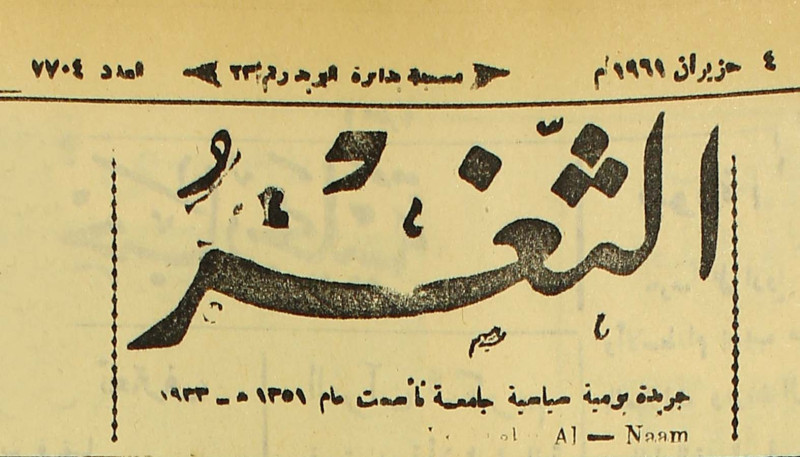 ٤ حزيران ١٩٦١م مسجلة بدائرة البريد رقم ٢٣ العدد ٧٧٠٤
الثَّغْرُ
جريدة يومية سياسية جامعة تأسست عام ١٣٥١ هـ ـ ١٩٣٣
Al — Naam